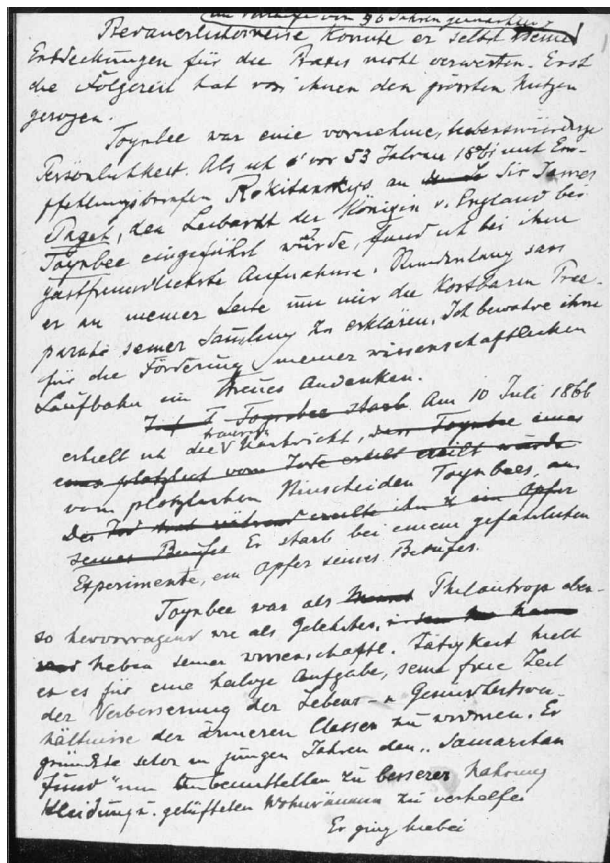 im Vorlage vor 56 Jahren gemachten
Bedauerlicherweise konnte er selbst seine
Entdeckungen für die Praxis nicht verwerten. Erst
die Folgezeit hat von ihnen den grössten Nutzen
gezogen.
Toynbee war eine vornehme, liebenswürdige
Persönlichkeit. Als ich vor 53 Jahren 1861 mit Em-
pfehlungsbriefen Rokitanskys an Sir James
Paget, den Leibarzt der Königin v. England bei
Toynbee eingeführt wurde, fand ich bei ihm
gastfreundlichste Aufnahme. Stundenlang sass
er an meiner Seite um mir die kostbaren Prae-
parate seiner Samlung zu erklären. Ich bewahre ihm
für die Förderung meiner wissenschaftlichen
Laufbahn ein treues Andenken.
Toynbee starb Am 10 Juli 1866
erhielt ich die traurige Nachricht, dass Toynbee eines
plötzlich vom Tode ereilt wurde
vom plötzlichen Hinscheiden Toynbees, an
Der Tod ereilte ihn ein Opfer
seines Berufes Er starb bei einem gefährlichen
Experimente, ein Opfer seines Berufes.
Toynbee war als Mensch Philantrop eben-
so hervorragend wie als Gelehrter,
neben seiner wissenschaftl. Tätigkeit hielt
er es für eine heilige Aufgabe, seine freie Zeit
der Verbesserung der Lebens- u Gesundheitsver-
hältnisse der ärmeren Classen zu widmen. Er
gründete schon in jungen Jahren den „Samaritan
fund" um Unbemittelten zu besserer Nahrung
Kleidung u. gelüfteten Wohnräumen zu verhelfen
Er ging hiebei